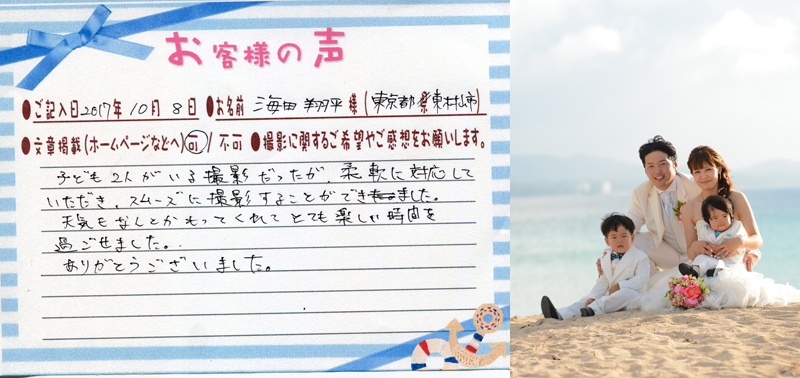 お客様の声
●ご記入日2017年10月8日●お名前 海田 翔平 様(東京都 東村山市)
●文章掲載(ホームページなどへ)可/不可●撮影に関するご希望やご感想をお願いします。
子ども2人がいる撮影だったが、柔軟に対応して
いただき、スムーズに撮影することができました。
天気もなんとかもってくれてとても楽しい時間を
過ごせました。
ありがとうございました。